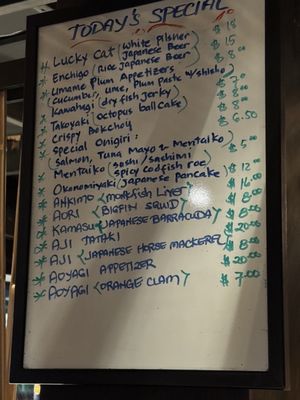 TODAY'S SPECIAL
* Lucky Cat (White Pilsner Japanese Beer)
* Enchigo (Rice Japanese Beer) $ 15
* Umame Plum Appetizers $ 8
(Cucumber, Ume, Plum Paste w/shiso)
* Kawahagi (dry fish jerky) $ 7
* Takoyaki (octopus ball cake) $ 8
* Crispy Bokchoy $ 8
* Special Onigiri: $ 6.50
(Salmon, Tuna Mayo & Mentaiko)
* Mentaiko (Sashi/Sachimi $ 5
spicy codfish roe)
* Okonomiyaki (Japanese Pancake) $ 12
* ANKIMO (monkfish liver) $ 16
* AORI (BIGFIN SQUID) $ 8
* KAMASU (JAPANESE BARRACUDA) $ 8
* AJI TATAKI $ 20
* AJI (JAPANESE HORSE MACKEREL) $ 8
* AOYAGI APPETIZER $ 20
* AOYAGI (ORANGE CLAM) $ 7.00